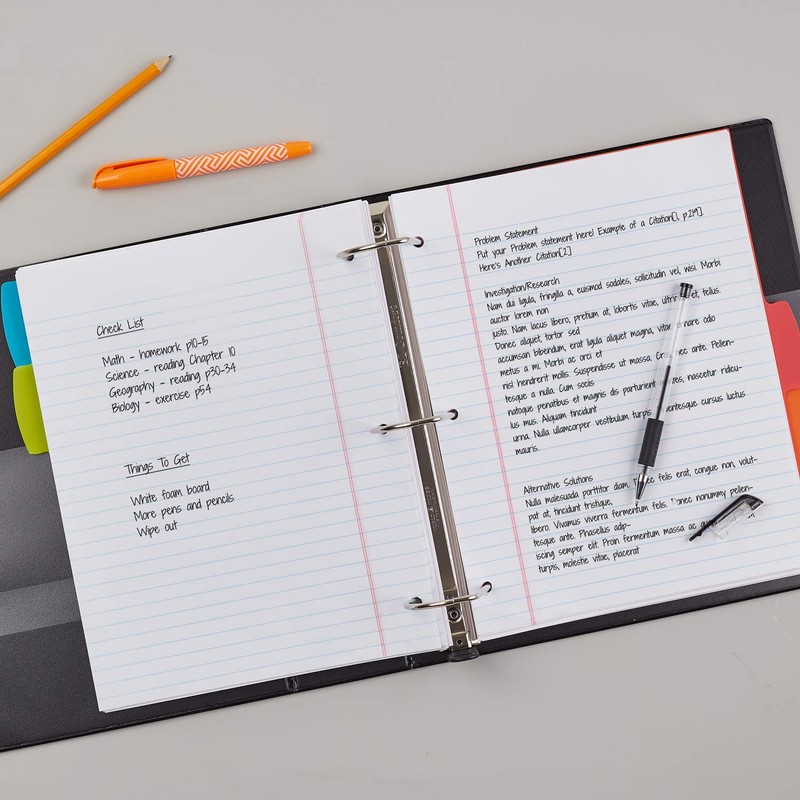 Check List
Math - homework p10-15
Science - reading Chapter 10
Geography - reading p30-34
Biology - exercise p54
Things To Get
White foam board
More pens and pencils
Wipe out
Problem Statement
Put your Problem statement here! Example of a Citation[1, p.219].
Here's Another Citation[2]
Investigation/Research
Nam dui ligula, fringilla a, euismod sodales, sollicitudin vel, wisi. Morbi
auctor lorem non
justo. Nam lacus libero, pretium at, lobortis vitae, et, tellus.
Donec aliquet, tortor sed
accumsan bibendum, erat ligula aliquet magna, vitae odio
metus a mi. Morbi ac orci et
nisl hendrerit mollis. Suspendisse ut massa. nec ante. Pellen-
tesque a nulla. Cum sociis
natoque penatibus et magnis dis parturient nascetur ridicu-
lus mus. Aliquam tincidunt
urna. Nulla ullamcorper vestibulum turpis. cursus luctus
mauris.
Alternative Solutions
Nulla malesuada porttitor diam. felis erat, congue non, volut-
pat at, tincidunt tristique,
libero. Vivamus viverra fermentum felis. Donec nonummy pellen-
tesque ante. Phasellus adip-
iscing semper elit. Proin fermentum massa ac
turpis, molestie vitae, placerat